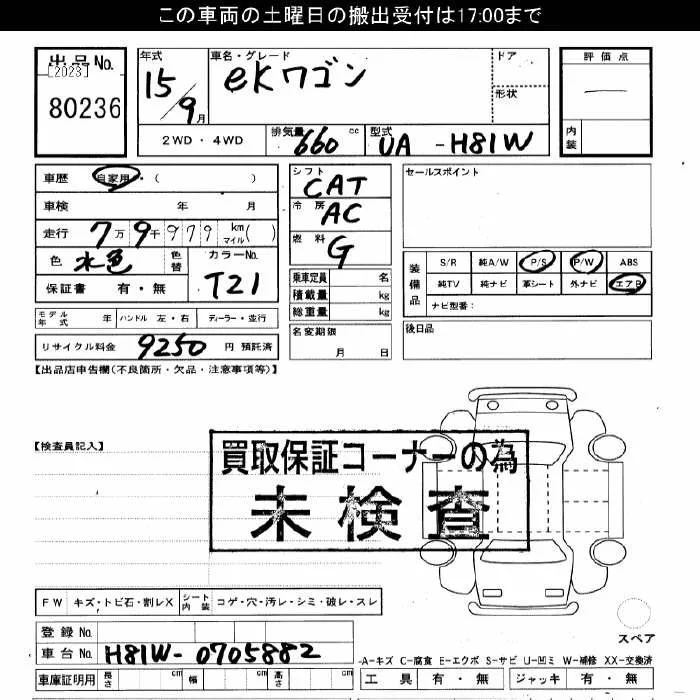 この車両の土曜日の搬出受付は17:00まで
出品No.
[2023]
80236
年式
15/9月
車名・グレード
eKワゴン
ドア
形状
評価点
内装
2WD・4WD
排気量 660 cc
型式 UA-H81W
車歴 自家用・( )
車検 年 月
走行 7万9千979 km マイル( )
色 水色 色替
カラーNo. T21
保証書 有・無
シフト CAT
冷房 AC
燃料 G
乗車定員 名
積載量 kg
総重量 kg
セールスポイント
装備品
S/R 純A/W P/S P/W ABS
純TV 純ナビ 革シート 外ナビ エアB
ナビ型番:
モデル年式 年 ハンドル 左・右 ディーラー・並行
名変期限 月 日
後日品
リサイクル料金 9250 円 預託済
【出品店申告欄(不良箇所・欠品・注意事項等)】
【検査員記入】
買取保証コーナーの為
未検査
FW キズ・トビ石・割レX シート内装 コゲ・穴・汚レ・シミ・破レ・スレ
スペア
登録No.
車台No. H81W-0705882
車庫証明用 長さ cm 幅 cm 高さ cm
-A-キズ C-腐食 E-エクボ S-サビ U-凹ミ W-補修 XX-交換済
工具 有・無 ジャッキ 有・無